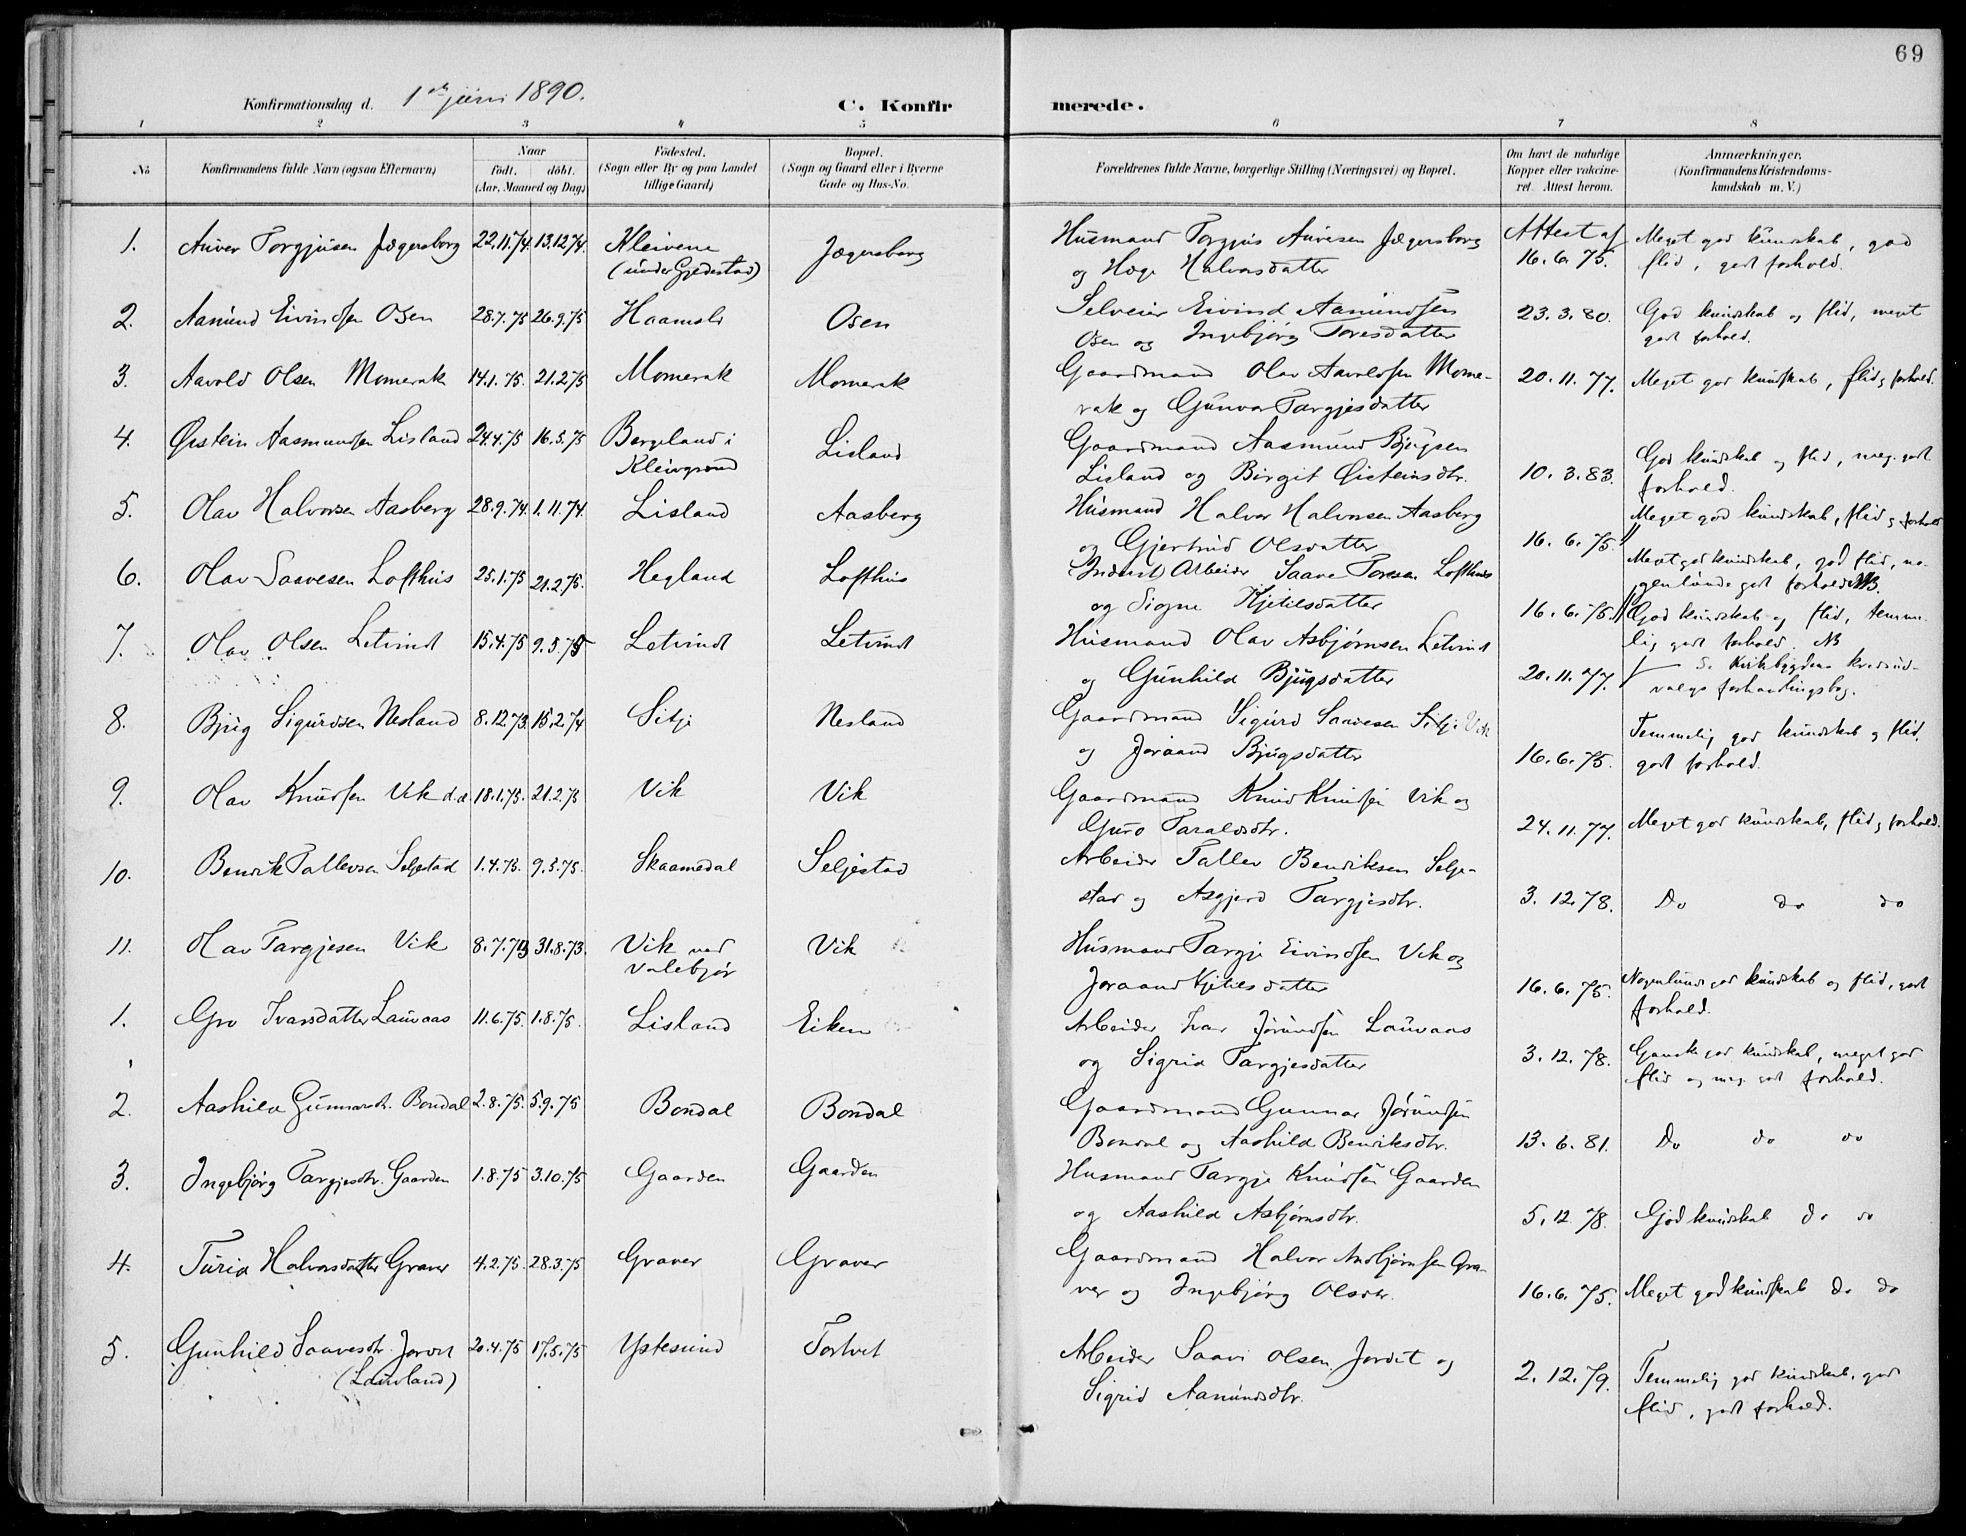 69
Konfirmationsdag d. 1ste juni 1890.
C. Konfirmerede.
1 2 3 4 5 6 7 8
No
Konfirmandens fulde Navn (ogsaa Efternavn)
Naar
födt. döbt.
(Aar, Maaned og Dag)
Födested.
(Sogn eller By og paa Landet
tillige Gaard)
Bopæl.
(Sogn og Gaard eller i Byerne
Gade og Hus-No.
Forældrenes fulde Navne, borgerlige Stilling (Næringsvei) og Bopæl.
Om havt de naturlige
Kopper eller vaccine-
ret. Attest herom.
Anmærkninger.
(Konfirmandens Kristendoms-
kundskab m. V.)
1. Auver Torgjusen Jægersborg 22.11.74. 13.12.74. Kleivene Jægersborg Husmand Torgjus Auvesen Jægersborg Attest af Meget god kundskab, god
(under Gjedestad) og Hæge Halvorsdatter 16.6.75. flid, godt forhold.
2. Aamund Eivindsen Osen 28.7.75 26.9.75 Haamsli Osen Selveier Eivind Aamundsen 23.3.80. God kundskab og flid, meget
Osen og Ingebjørg Toresdatter godt forhold.
3. Aavold Olsen Momrak 14.1.75. 21.2.75 Momrak Momrak Gaardmand Olav Aavoldsen Mom- 20.11.77. Meget god kundskab, flid og forhold.
rak og Gunvor Targjesdatter
4. Øistein Aasmundsen Lisland 24.4.75 16.5.75 Bergeland i Lisland Gaardmand Aasmund Bjugsen
Kleivgrend Lisland og Birgit Øisteinsdtr. 10.3.83. God kundskab og flid, meg. godt
forhold.
5. Olav Halvorsen Aasberg 28.9.74. 1.11.74. Lisland Aasberg Husmand Halvor Halvorsen Aasberg Meget god kundskab, flid og forhold
og Gjertrud Olsdatter 16.6.75.
6. Olav Saavesen Lofthus 25.1.75 21.2.75. Hegland Lofthus (Inderst) Arbeider Saave Toresen Lofthus Meget god kundskab, god flid, no-
og Signe Kjetilsdatter 16.6.75. genlunde godt forhold NB.
7. Olav Olsen Letvindt 15.4.75 9.5.75 Letvindt Letvindt Husmand Olav Asbjørnsen Letvindt God kundskab og flid, temme-
lig godt forhold. NB
og Gunhild Bjugsdatter 20.11.77. S. Kirkebygdens kredsud-
valgs forhandlingsbog.
8. Bjug Sigurdsen Nesland 8.12.73. 15.2.74 Sitje Nesland Gaardmand Sigurd Saavesen Sitje Vik
og Joraand Bjugsdatter 16.6.75. Temmelig god kundskab og flid,
godt forhold.
9. Olav Knudsen Vik d.æ 18.1.75. 21.2.75 Vik Vik Gaardmand Knud Knudsen Vik og
Guro Taraldsdtr. 24.11.77. Meget god kundskab, flid og forhold.
10. Benrik Tallevsen Seljestad 1.4.75. 9.5.75. Skaamedal Seljestad Arbeider Tallev Benriksen Selje-
stad og Asgjerd Targjesdtr. 3.12.78. Do do do
11. Olav Targjesen Vik 8.7.73 31.8.73. Vik ved Vik Husmand Targje Eivindsen Vik og
Valebjør Joraand Kjetilsdatter 16.6.75. Nogenlunde god kundskab og flid, godt
forhold.
1. Gro Ivarsdatter Lauvaas 11.6.75. 1.8.75. Lisland Eiken Arbeider Ivar Jørundsen Lauvaas
og Sigrid Targjesdatter 3.12.78. Ganske god kundskab, meget god
flid og meg. godt forhold.
2. Aashild Gunnarsdt. Bondal 2.8.75. 5.9.75 Bondal Bondal Gaardmand Gunnar Jørundsen
Bondal og Aashild Benriksdtr. 13.6.81. Do do do
3. Ingebjørg Targjesdtr. Gaarden 1.8.75 3.10.75 Gaarden Gaarden Husmand Targje Knudsen Gaarden
og Aashild Asbjørnsdtr. 5.12.78. God kundskab do do
4. Turid Halvorsdatter Graver 4.2.75. 28.3.75 Graver Graver Gaardmand Halvor Andbjørnsen Gra-
ver og Ingebjørg Olsdtr. 16.6.75. Meget god kundskab do do
5. Gunhild Saavesdtr. Jordet 20.4.75 17.5.75 Ystesund Tortvet Arbeider Saavi Olsen Jordet og
(Lauvland) Sigrid Aamundsdtr. 2.12.79. Temmelig god kundskab, god
flid, godt forhold.